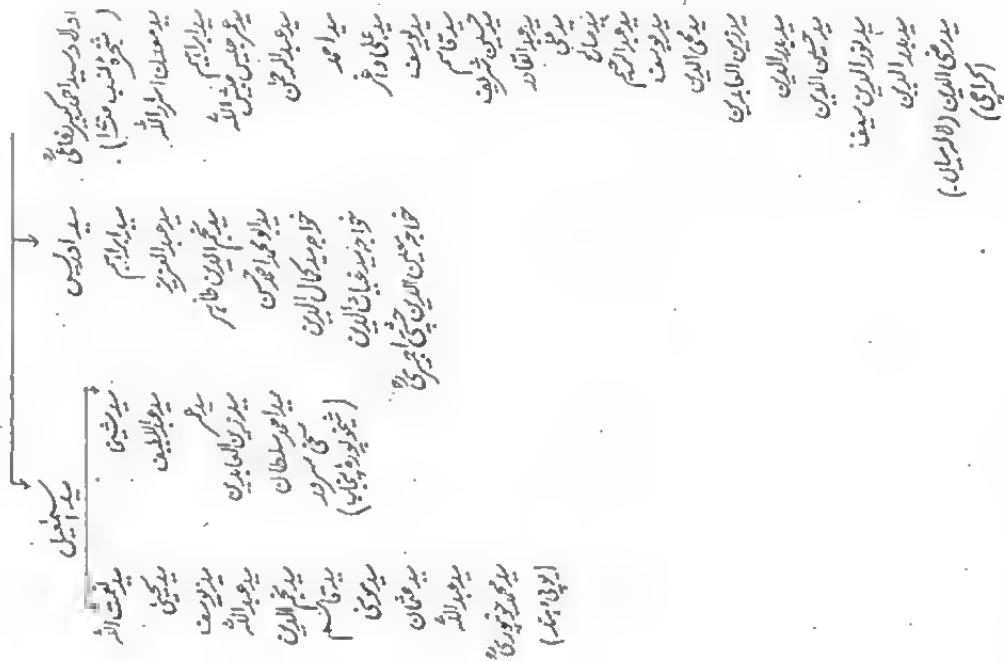 اولاد سید احمد کبیر رفاعیؒ
(شجرہ النسب
سید معدن اسرار اللہ
سید ابراہیم
سید عبدالرحمٰن
سید احمد
سید علی
سید یوسف
سید قاسم
حسین شریف
سید عبدالقادر
سید علی
سید صالح
سید عبدالرحیم
سید یوسف
سید محی الدین
سید زین العابدین
سید بدرالدین
سید حسین الدین
سید نورالدین سیف
سید بدرالدین
سید محی الدین (لالہ میاں۔)
(کراچی)
سید ادریس
سید ابراہیم
سید عبدالعزیز
سید نجم الدین طاہر
سید ابو محمد احمد حسن
خواجہ سید کمال الدین
خواجہ سید غیاث الدین
خواجہ معین الدین چشتی اجمیریؒ
سید اسمٰعیل
سید عبداللطیف
سید عمر
سید زین العابدین
سید احمد سلطان
سخی سرور
(شیخوپورہ پنجاب)
سید نعمت اللہ
سید یحییٰ
سید یوسف
سید عبداللہ
سید نجم الدین
سید قاسم
سید موسیٰ
سید عثمان
سید عبداللہ
سید محمد جونپوریؒ
(یوپی، ہند)